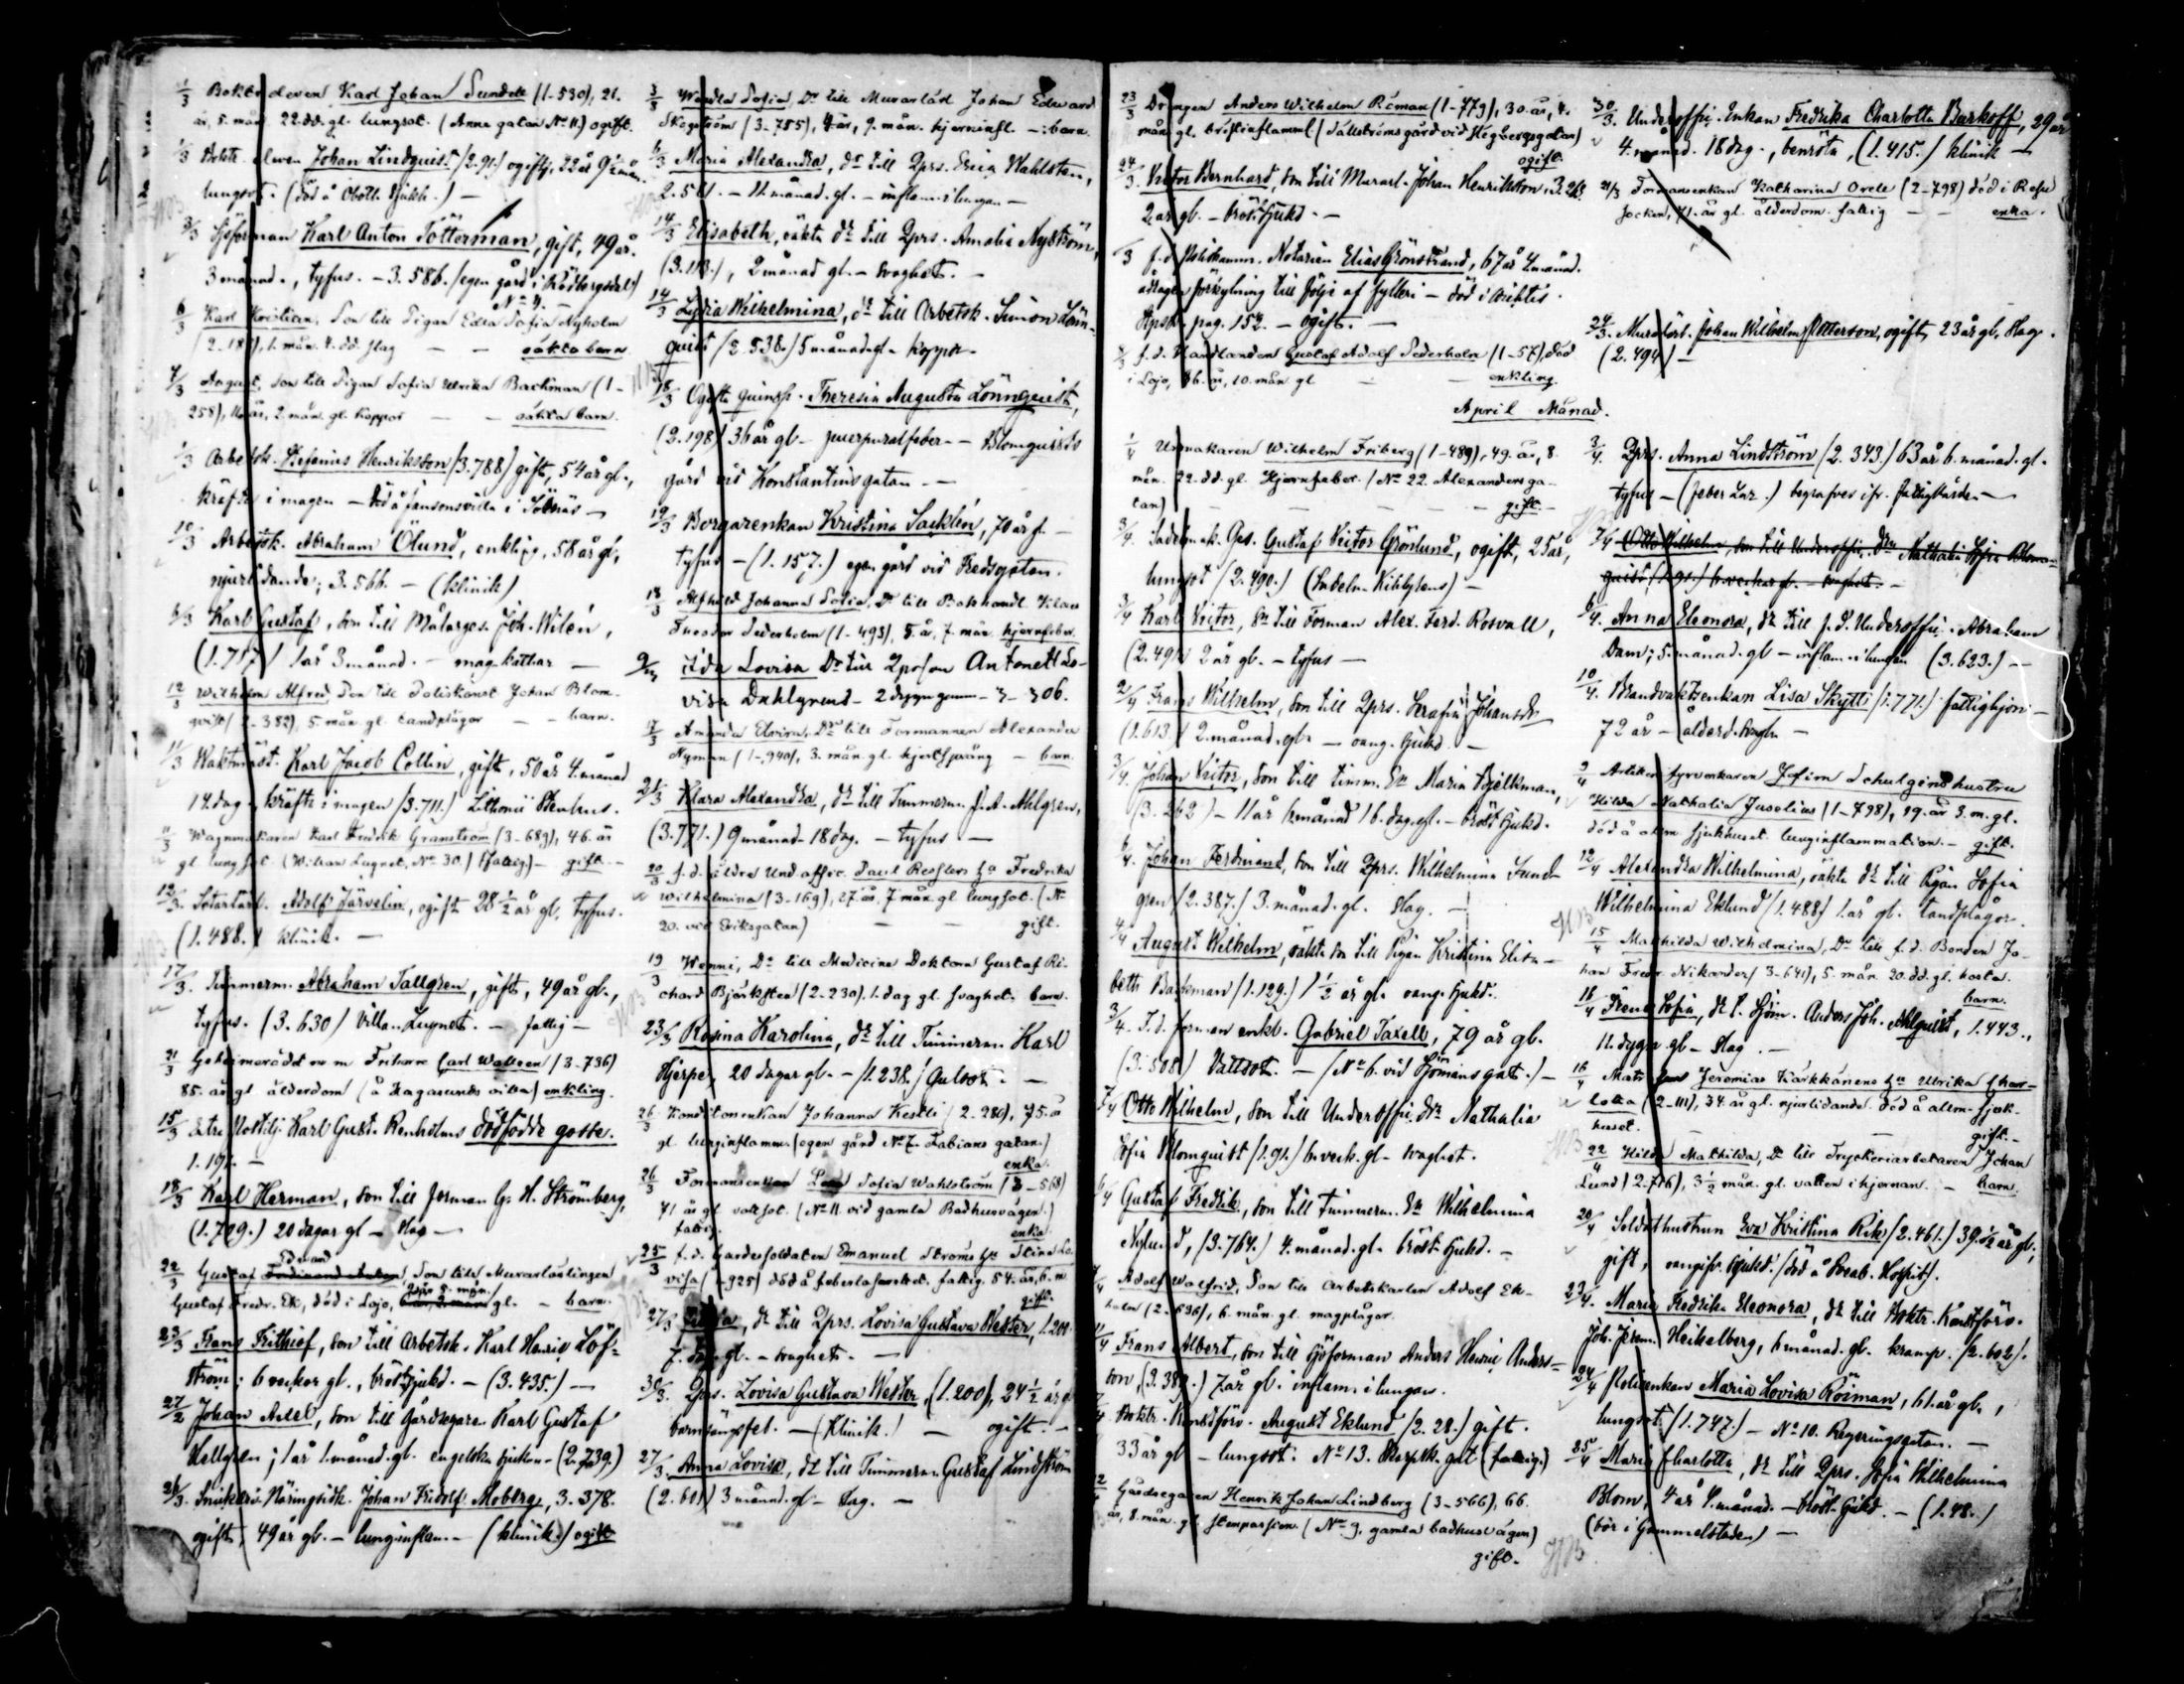 1/3 Boktr. eleven Karl Johan Sundell (1-530), 21.
år, 5. mån. 22. dd. gl. lungsot. (Anne gatan No 11.) ogift.
1/3 elven Johan Lindquist (2.91.) ogift, 22 år 9½ mån.
lungsot. (död å Sjukh.) —
3/3 Sjöforman Karl Anton Tötterman, gift, 49 år.
3 månad., tyfus. – 3.586. (egen gård i
No 4. –
6/3 Karl Kristian, Son till Pigan Edla Sofia Nyholm
1. mån. 4. dd. slag — — oäkta barn
7/3 August, Son till Pigan Sofia Ulrika Backman (1-
258), 2. mån. gl. koppor — — oäkta barn.
1/3 Arbetsk. Stefanus Henriksson (3.788) gift, 54 år gl.,
kräfta i magen – död å Jansonsvilla i Sörnäs –
10/3 Arbetsk. Abraham Ölund, enkling, 58 år gl.,
njurlidande; 3.566. – (klinik)
Karl Gustaf, Son till Målarges. Joh. Wilén,
(1.717) 1 år 3 månad. – mag. kattar —
12/3 Wilhelm Alfred Son till Poliskonst. Johan Blom-
qvist (2-382), 5. mån. gl. tandplågor — — barn.
11/3 Waktmäst. Karl Jacob Collin, gift, 50 år 4. månad
14. dag. kräfta i magen (3.711.) Stenhus.
11/3 Wagnmakaren Karl Fredrik Granström (3-689), 46. år
gl. lungsot (Willan Lugnet, No 30.) (fattig) – gift. –
12/3. Adolf Järvelin, ogift 28½ år gl., tyfus.
(1.488.) klinik. —
17/3. Timmerm. Abraham Tallgren, gift, 49 år gl.,
tyfus. (3.630) Villa Lugnet. – fattig –
21/3 Geheimerådet m m Friherre Carl Walleen (3-736)
85. år gl. ålderdom (å Hagasunds villa) enkling.
15/3 Karl Gust. Renholms dödfödde gosse.
1.191. –
18/3 Karl Herman, Son till forman G. H. Strömberg,
(1.709.) 20 dagar gl – slag —
Edvard
22/3 Gustaf, Son till Murarlärlingen
Gustaf Fredr. Ek, död i Lojo, gl. – barn.
23/3 Frans Frithiof, Son till Arbetsk. Karl Henric Löf-
ström; 6 veckor gl., bröstsjukd. – (3.435.) —
27/2 Johan Axel, Son till Gårdsegare Karl Gustaf
Hellgren; 1 år 1. månad. gl. engelska sjukan – (2.739.)
26/3. Snickeri Näringsidk. Johan Fridolf Moberg, 3.378.
ogift, 49 år gl. – lunginflam. – (klinik.) ogift
3/3 Wendla Sofia, Dr till Murarlärl Johan Edward
Skogström (3-755), 4 år, 9. mån. hjerninfl. – barn.
6/3 Maria Alexandra, dr till Qprs. Erica Wahlsten,
2.511. – 11. månad. gl. – inflam. i lungan –
14/3 Elisabeth, oäkta dr till Qprs. Amalia Nyström,
(3.113.), 2 månad gl. – svaghet. –
14/3 Lydia Wilhelmina, dr till Arbetsk. Simon Lönn-
quist (2.538.) 5 månad gl. – koppor.
18/3 Ogifta quinsp. Theresia Augusta Lönnquist,
(2.198) 36 år gl. – puerperalfeber. – Blomquists
gård vid Konstantinsgatan. —
19/3 Borgarenkan Kristina Sacklén, 70 år g. –
tyfus – (1.157.) egen gård vid Fredsgatan.
18/3 Alfhild Johanna Sofia, Dr till Bokhandl. Klaus
Theodor Sederholm (1-493), 5. år, 7. mån. hjernfeber.
9/3 Ida Lovisa Dr till Qprson Antonetta Lo-
visa Dahlgrens – 2 dygn gamm. – 3-306.
17/3 Amanda Elvira, Dr till Formannen Alexander
Nyman (1-940), 3. mån. gl. hjertsprång – barn.
21/3 Klara Alexandra, dr till Timmerm. J. A. Ahlgren,
(3.771.) 9 månad. 18 dag. – tyfus —
20/3 f. d. äldre Und. offic. Paul Resslers ha Fredrika
Wilhelmina (3-169), 27. år, 7 mån. gl lungsot. (No
20. vid Eriksgatan) — — gift.
19/3 Wenni, Dr till Medicine Doktorn Gustaf Ri-
chard Björksten (2-230). 1. dag gl. svaghet. barn.
23/3 Rosina Karolina, dr till Timmerm. Karl
Hjerpe, 20 dagar gl. – (1.238.) Gulsot. —
26/3 enkan Johanna Kestli (2-280), 75. å
gl. lunginflamm. (egen gård No 7. Fabians gatan.)
enka.
26/3 Formansenkan Sofia Wahlström (3-568)
71 år gl. vattsot. (No 11. vid gamla Badhusvägen.)
fattig. enka
25/3 f. d. Gardessoldaten Emanuel Ströms ha Stina Lo-
visa (-925) död å feberlasarettet. fattig. 54. år, 6. m
gift.
27/3 dr till Qprs. Lovisa Gustava Wester, 1.200.
7. gl. – svaghet. —
30/3. Qprs. Lovisa Gustava Wester, (1.200), 24½ år gl
barnsängsfeb. – (Klinik.) — ogift. –
27/3. Anna Lovisa, dr till Timmerm. Gustaf Lindström
(2.601) 3 månad. gl – slag. —
23/3 Drengen Anders Wilhelm Röman (1-779), 30. år, 4.
mån. gl. bröstinflamml. (Sällströmsgård vid Högbergsgatan)
ogift.
24/3. Victor Bernhard, Son till Murarl. Johan Henriksson 3.26.
2 år gl. – bröstsjukd. –
3 f. d. Poliskamm. Notarien Elias Grönstrand, 67 år 4. månad.
ådragen förkylning till följe af fylleri – död i
pag. 152. – ogift. –
3 f. d. Handlanden Gustaf Adolf Sederholm (1-57), död
i Lojo, 66. år, 10. mån. gl — — enkling.
30/3. Underoffic. Enkan Fredrika Charlotta Barkoff, 29 år
4. månad. 18 dag., benröta, (1.415.) klinik –
21/3 Formansenkan Katharina Orell (2-798) död i
Socken, 71. år gl. ålderdom. fattig — — enka.
24/3. Murarlärl. Johan Wilhelm Petterson, ogift, 23 år gl. Slag.
(2.494) –
April Månad.
1/4 Urmakaren Wilhelm Friberg (1-489), 49. år, 8.
mån. 22. dd. gl. Hjernfeber. (No 22. Alexandersga-
tan) — — — — gift –
3/4. Sadelmak. Ges. Gustaf Victor Grönlund, ogift, 25 år,
lungsot (2.490.) –
3/4 Karl Victor, Sn till Forman Alex. Ferd. Rosvall,
(2.491) 2 år gl. – tyfus —
2/4 Frans Wilhelm, Son till Qprs. Serafia Johansdr
(1.613) 2. månad. gl. – sjukd –
3/4. Johan Victor, Son till timm. En Maria Bjelkman,
(3.262) – 11 år månad 16. dag. gl. – bröst sjukd.
6/4. Johan Ferdinand, Son till Qprs. Wilhelmina Sund-
gren (2.387.) 3. månad. gl. Slag. –
4/4 August Wilhelm, oäkta Son till Pigan Kristina Elisa-
beth Backman (1.129.) 1½ år gl. sjukd.
3/4. F. d. forman enkl. Gabriel Taxell, 79 år gl.
(3.508) Vattsot. – (No 6. vid Sjömansgat.) –
7/4 Otto Wilhelm, Son till Underoffic. Dr Nathalia
Sofia Blomquist (1.91.) 6 veck. gl. svaghet.
6/4 Gustaf Fredrik, Son till timmerm. En Wilhelmina
Nylund, (3.764.) 4. månad. gl. bröst. sjukd. –
Adolf Walfrid, Son till arbetskarlen Adolf Ek-
holm (2-636), 6. mån. gl. magplågor.
11/4 Frans Albert, Son till Sjöforman Anders Henric Anders-
son, 7 år gl. inflam. i lungan.
Boktr. Konstförv. August Eklund (2.28.) gift.
33 år gl – lungsot. No 13. gat. (fattig)
12 Gårdsegaren Henrik Johan Lindberg (3-566), 66.
år, 8. mån. gl. (No 9. gamla badhusvägen)
gift.
3/4. Qprs. Anna Lindström (2.343.) 63 år 6. månad. gl.
tyfus – (feber Laz.) begrafves ifr. fattigvården —
7/4 Otto Wilhelm, Son till Underoffic. Drn Nathalia Sofia Blom-
quist, (1.91.) 6 veckor gl. – svaghet. –
6/4. Anna Eleonora, dr till f. d. Underoffic. Abraham
Dam; 5. månad. gl – inflam. i lungan (3.623.) —
10/4. Brandvaktsenkan Lisa Skytti (1.771.) fattighjon –
72 år – ålderd. svaghet –
9/4 Jefim Schulgins hustru
Hilda Nathalia Juselius (1-798), 19. år 3. m. gl.
död å allm. sjukhuset. lunginflammation. – gift.
12/4 Alexandra Wilhelmina, oäkta dr till Pigan Sofia
Wilhelmina Eklund (1.488) 1 år gl. tandplågor.
15/4 Mathilda Wilhelmina, Dr till f. d. Bonden Jo-
han Fredr. Nikander (3-641), 5. mån. 20. dd. gl. hosta.
barn.
16/4 Irene Sofia, dr t. Sjöm. Anders Joh. Ahlquist, 1.443.,
11. dygn gl – slag. –
16/4 Jeremias Kärkkänens ha Ulrika Char-
lotta (2-111), 34. år gl. njurlidande. död å allm. sjuk-
huset. — gift. –
22/4 Hilda Mathilda, Dr till Tryckeriarbetaren Johan
Lund (2.716), 3½ mån. gl. vatten i hjernan. – barn.
20/4 Soldathustrun Eva Kristina Rik (2.461.) 39½ år gl.,
gift, sjukd. (död å Provb. Hospit.).
23/4. Maria Fredrika Eleonora, dr till Boktr. Konstförv.
Joh. Jerem. Heikelberg, 6 månad. gl. kramp. (2.602).
24/4 Polisenkan Maria Lovisa Röiman, 61. år gl.,
lungsot. (1.747.) – No 10. Regeringsgatan. –
25/4 Maria Charlotta, dr till Qprs. Sofia Wilhelmina
Blom, 4 år 4. månad. – bröst. sjukd. – (1.48.)
(bor i Gammelstaden) –